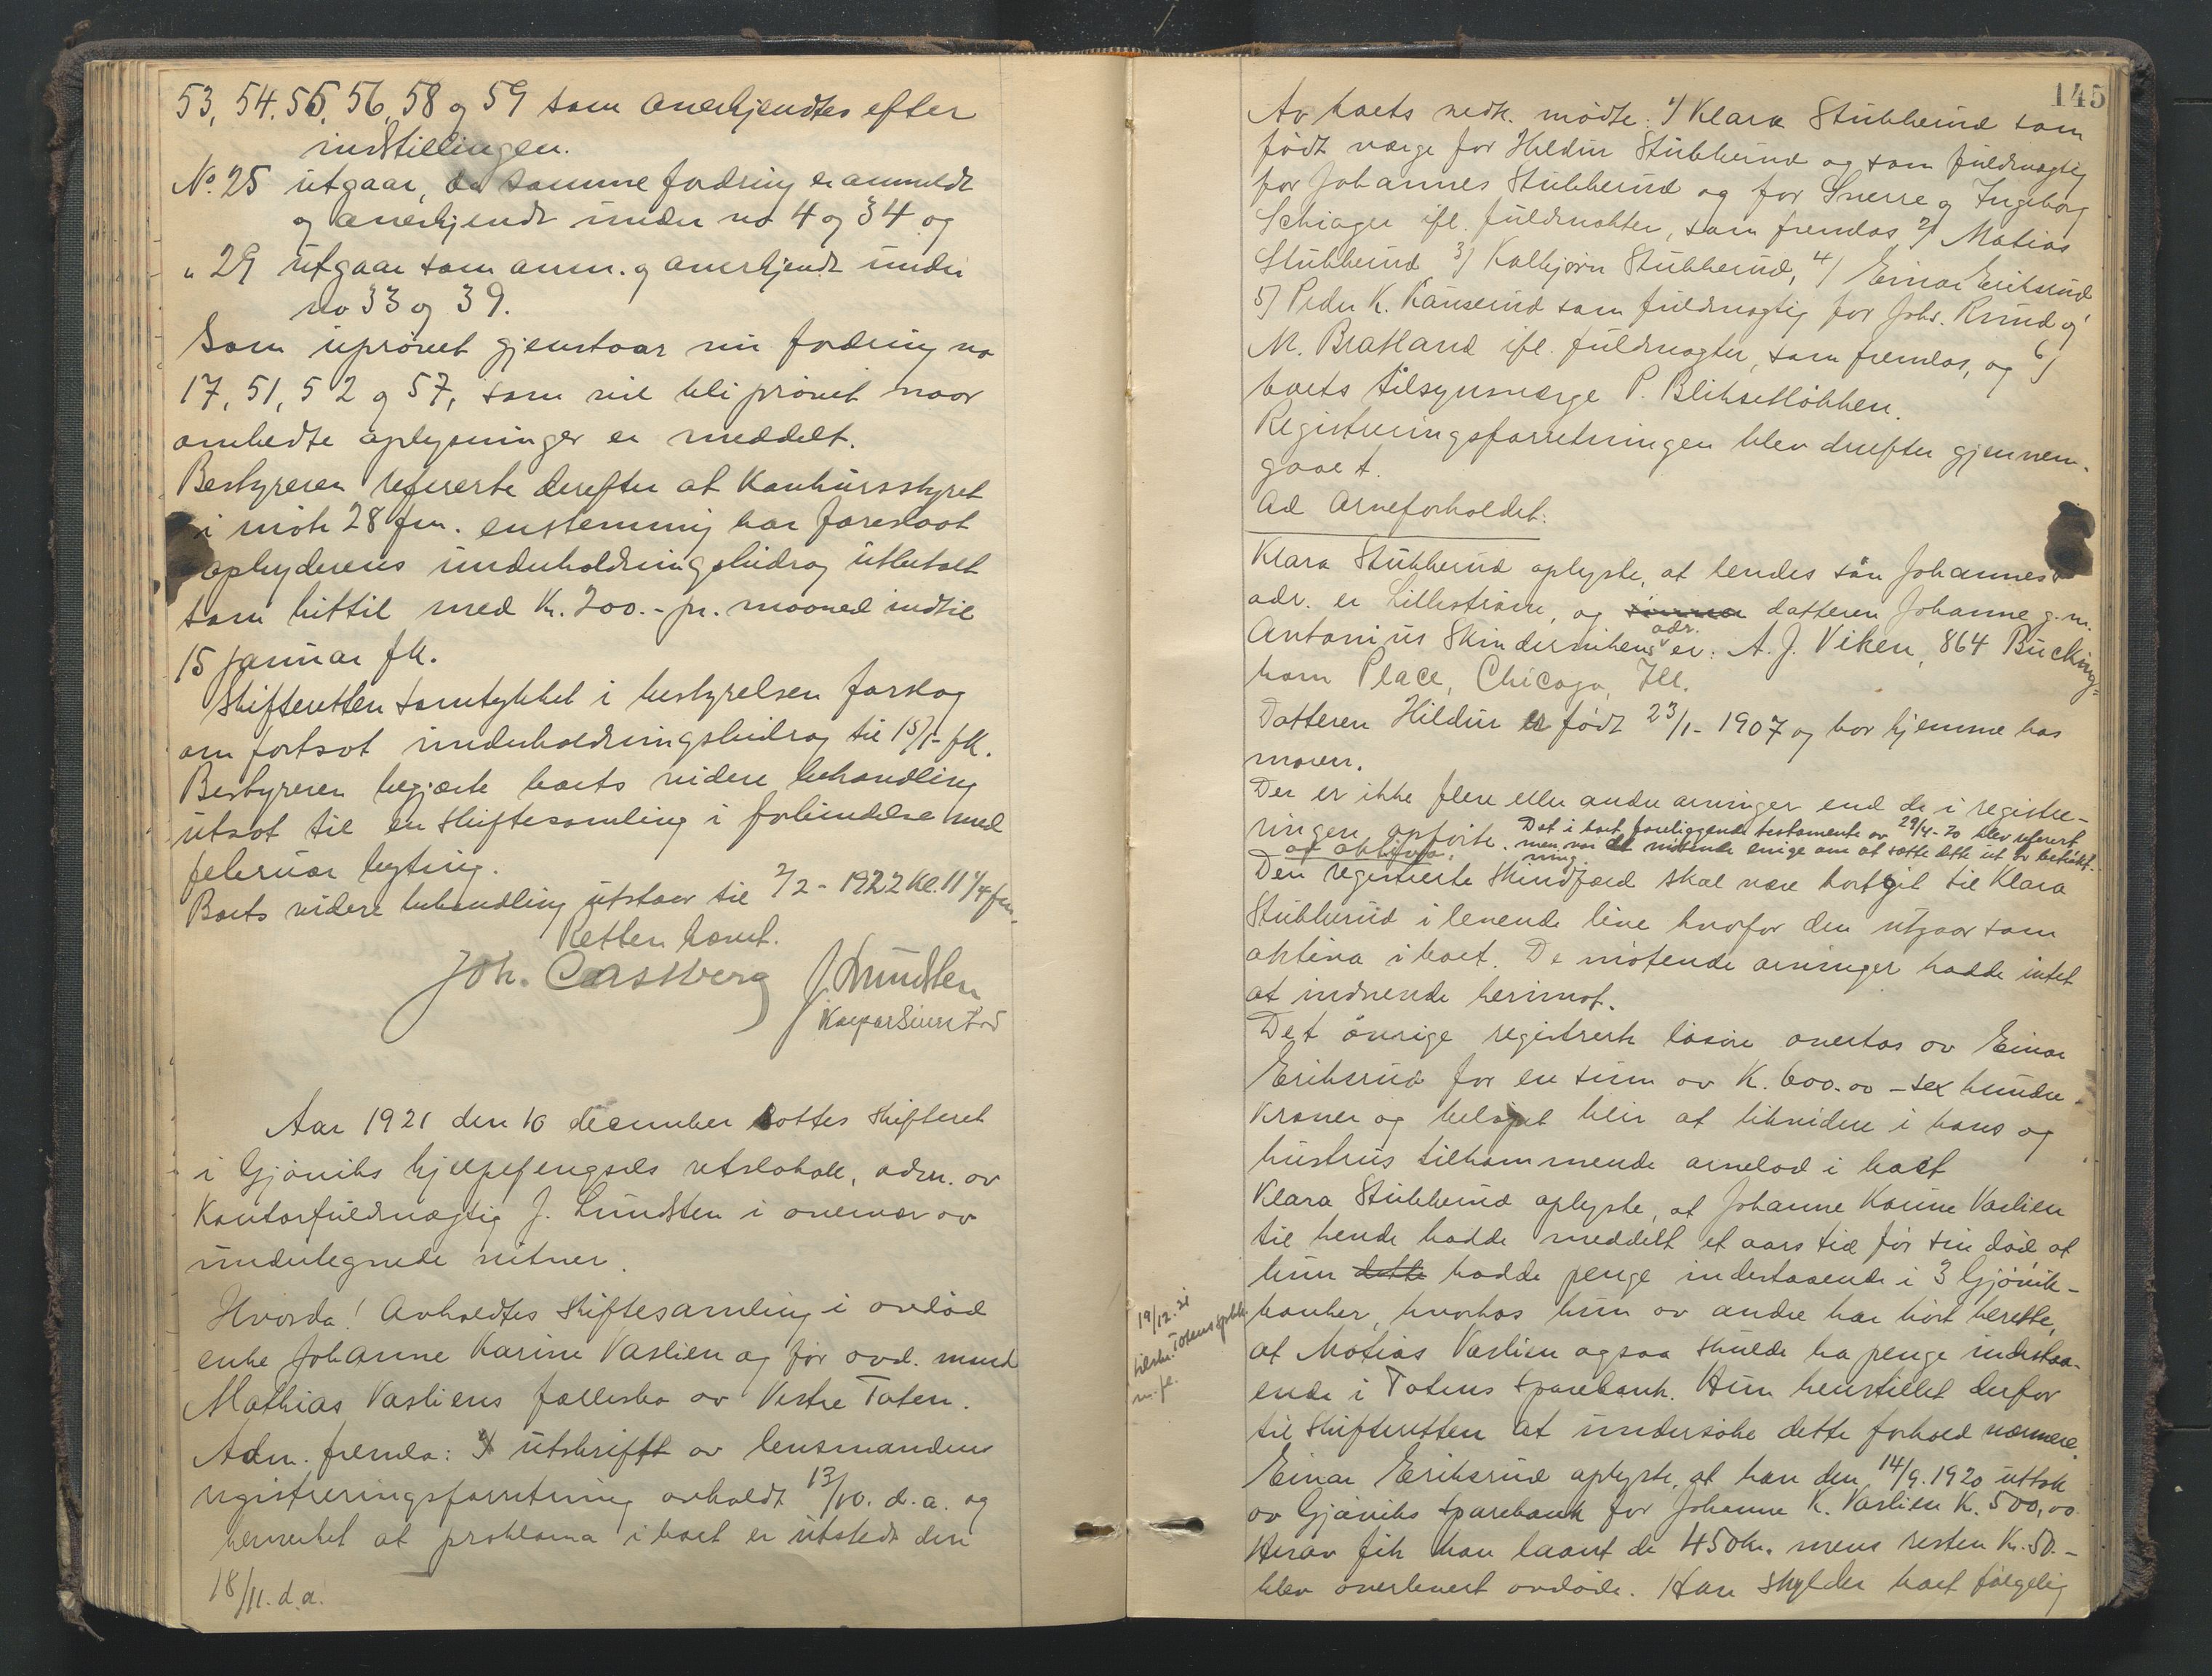 53, 54, 55, 56, 58 og 59 som anerkjendtes efter
indstillingen.
No. 25 utgaar, da samme fordring er anmeldt
og anerkjendt under no 4 og 34 og
" 29 utgaar som anm. og anerkjendt under
no 33 og 39.
Som uprøvet gjenstaar nu fordring no
17, 51, 52 og 57, som vil bli prøvet naar
ombedte oplysninger er meddelt.
Bestyreren refererte derefter at Konkursstyret
i møte 28 fm. enstemmig har foreslaat
opbyderens underholdningsbidrag utbetalt
som hittil med Kr. 200.- pr. maaned indtil
15 januar fk.
Skifteretten samtykket i bestyrelsen forslag
om fortsat underholdningsbidrag til 15/1- fk.
Bestyreren begjærte boets videre behandling
utsat til en skiftesamling i forbindelse med
februar bygting.
Boets videre behandling utstaar til 2/2 - 1922 Kl. 11 1/4 fm.
Retten hævet.
Joh. Castberg J. Lundsten
Kaspar Sivesind
Aar 1921 den 10 december sattes skifteret
i Gjøviks hjelpefengsels retslokale, adm. av
Kontorfuldmægtig J. Lundsten i overvær av
undertegnede vitner.
Hvorda! Avholdtes skiftesamling i avdød
enke Johanne Karine Vaslien og før avd. mand
Mathias Vasliens fællesbo av Vestre Toten.
Adm. fremla: utskrift av lensmandens
registreringsforretning avholdt 13/10. d.a. og
bemerket at proklama i boet er utstedt den
18/11. d.a.
145
Av boets vedk. mødte: 1) Klara Stubberud som
født værge for Hildur Stubberud og som fuldmægtig
for Johannes Stubberud og for Sverre og Ingeborg
Schiager ifl. fuldmakter, som fremlas 2) Matias
Stubberud 3) Kolbjørn Stubberud, 4) Einar Eriksrud
5) Peder K. Kauserud som fuldmægtig for Johs. Ruud og
M. Bratland ifl. fuldmagter, som fremlas, og 6)
boets tilsynsværge P. Blikset­løkken.
Registreringsforretningen blev derefter gjennem-
gaaet.
Ad Arveforholdet:
Klara Stubberud oplyste, at hendes søn Johannes's
adr. er Lillestrøm, og datteren Johanne g.m.
Antonius Skindervikens adr. er: A. J. Viken, 864 Bucking-
ham Place, Chicago, Ill.
Datteren Hildur er født 23/1- 1907 og bor hjemme hos
moren.
Der er ikke flere eller andre arvinger end de i registre-
ringen opførte. Det i boet foreliggende testamente av 29/4-20 blev referert
men var de mødende enige om at sætte dette ut av betrakt-
ning.
ad aktiva:
Den registrerte skindfæld skal være bortgit til Klara
Stubberud i levende live hvorfor den utgaar som
aktiva i boet. De møtende arvinger hadde intet
at indvende herimot.
Det øvrige registrerte løsøre overtas av Einar
Eriksrud for en sum av K. 600.00 - sex hundre
kroner og beløpet blir at likvidere i hans og
hustrus tilkommende arvelod i boet
Klara Stubberud oplyste, at Johanne Karine Vaslien
til hende hadde meddelt et aars tid før sin død at
hun dette hadde penge indestaaende i 3 Gjøvik-
banker, hvorhos hun av andre har hørt berette,
at Matias Vaslien ogsaa skulde ha penge indestaa-
ende i Totens Sparebank. Hun henstillet derfor
til skifteretten at undersøke dette forhold nærmere.
Einar Eriksrud oplyste, at han den 14/9. 1920 uttok
av Gjøviks Sparebank for Johanne K. Vaslien K. 500,00
Herav fik han laant de 450 kr. mens resten Kr. 50.-
blev overlevert avdøde. Han skylder boet følgelig
19/12. 21
tilskr. Totens spbk.
m. fl.